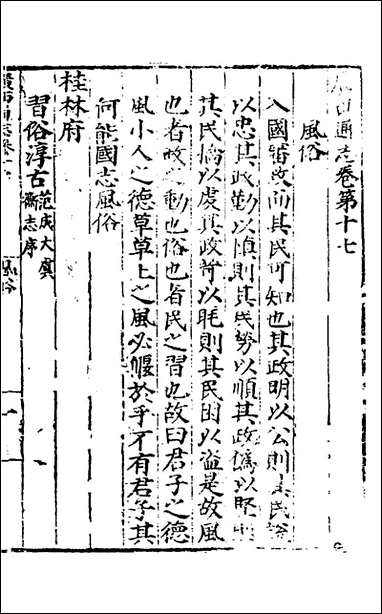 西通志卷第十七
風俗
入國審政而其民可知也其政明以公則其民
以忠其政勤以慎則其民勞以順其政偽以堅則
其民憍以虔其政苛以眊則其民困以謚是故風
也者政之動也俗也者民之習也故曰君子之德
風小人之德草草上之風必偃於乎不有君子其
何能國志風俗
桂林府
習俗淳古范成大虞衡志序
風俗